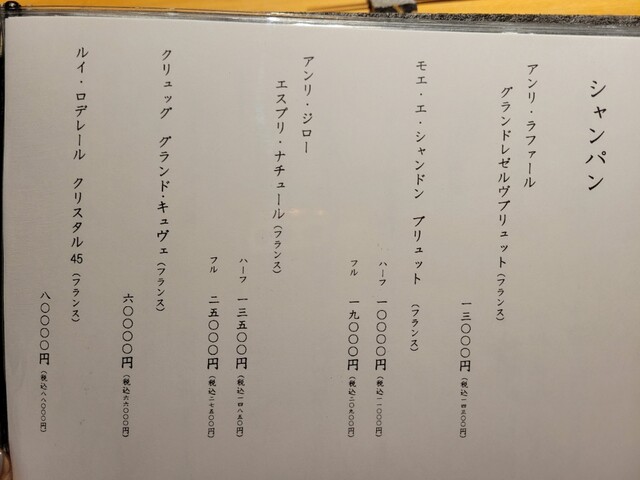 シャンパン
アンリ・ラファール
グランドレゼルヴブリュット(フランス)
一三〇〇〇円(税込一四三〇〇円)
モエ・エ・シャンドン ブリュット (フランス)
ハーフ 一〇〇〇〇円(税込一一〇〇〇円)
フル 一九〇〇〇円(税込二〇九〇〇円)
アンリ・ジロー
エスプリ・ナチュール(フランス)
ハーフ 一三五〇〇円(税込一四八五〇円)
フル 二五〇〇〇円(税込二七五〇〇円)
クリュッグ グランド・キュヴェ(フランス)
六〇〇〇〇円(税込六六〇〇〇円)
ルイ・ロデレール クリスタル 45 (フランス)
八〇〇〇〇円(税込八八〇〇〇円)